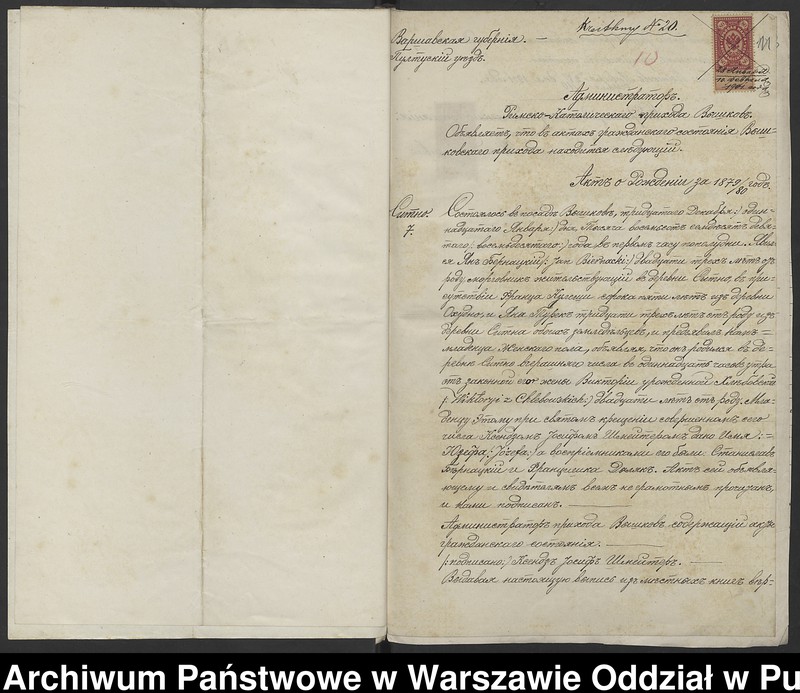 Варшавская губернія. —
Пултускій уѣздъ.
№ 20.
10
Администраторъ.
Римско-Католическаго прихода Вышковъ.
Объявляетъ, что въ актахъ гражданскаго состоянія Выш-
ковскаго прихода находится слѣдующій.
Актъ о Рожденіи за 1879/80 годъ.
Ситно.
7.
Состоялось въ посадѣ Вышковѣ, тридцатаго Декабря /: один-
надцатаго Января :/ дня, Тысяча восемьсотъ семьдесятъ девя-
таго /: восемьдесятаго :/ года въ первомъ часу пополудни. Явил-
ся Янъ Бернацкій /: Jan Biernacki :/ двадцати трехъ лѣтъ отъ
роду, жительствующій въ деревни Ситно, въ при-
сутствіи Франца сорока пяти лѣтъ изъ деревни
и Яна Турекъ тридцати трехъ лѣтъ отъ роду изъ
деревни Ситна обоихъ земледѣльцевъ, и предъявилъ намъ =
младенца женскаго пола, объявляя, что онъ родился въ де-
ревнѣ Ситно вчерашняго числа въ одиннадцать часовъ утра
отъ законной его жены Викторіи урожденной Хлѣбовской
/: Wiktoryi z Chlebowskich :/ двадцати лѣтъ отъ роду. Мла-
денцу этому при святомъ крещеніи совершонномъ сего
числа Ксендзомъ Іосифомъ Шмейтеромъ дано Имя : =
Юзефа /: Józefa :/ а воспріемниками его были Станиславъ
Бѣрнацкій и Францишка Актъ сей объявля-
ющему и свидѣтелямъ всѣмъ не грамотнымъ прочитанъ,
и нами подписанъ. —
Администраторъ прихода Вышковъ содержащій акты
гражданскаго состоянія. —
/: подписано :/ Ксендзъ Іосифъ Шмейтеръ. —
Выдавая настоящую выпись изъ мѣстныхъ книгъ вѣр-
Archiwum Państwowe w Warszawie Oddział w Pu